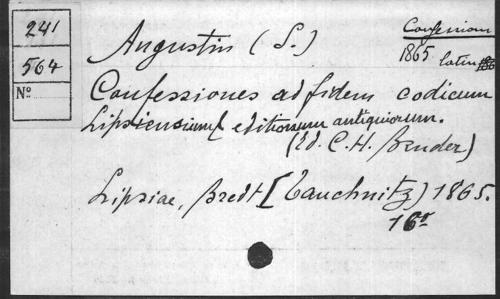 241
564
No
Confessions
1865 latin
Augustin (S.)
Confessiones ad fidem codicum
Lipsiensium et editionum antiquiorum.
(Ed. C. H. Bender)
Lipsiae, Bredt [Tauchnitz) 1865.
16º